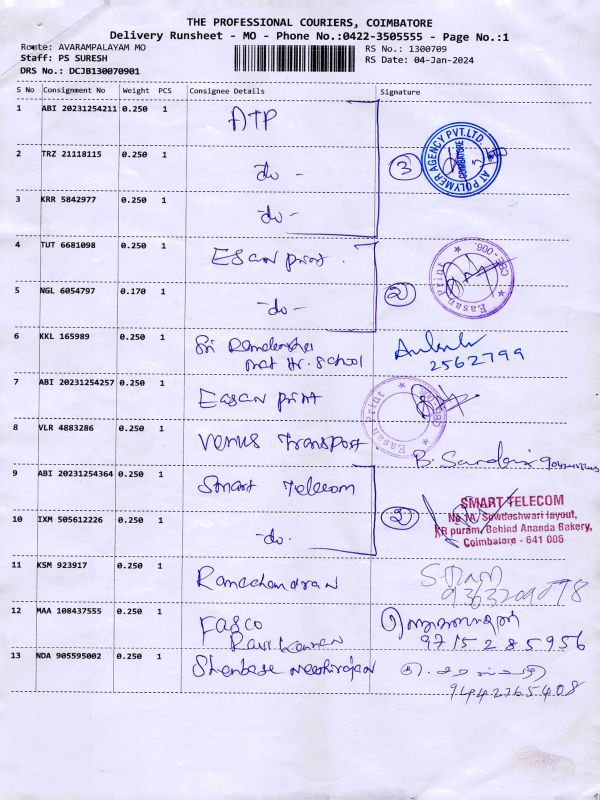 THE PROFESSIONAL COURIERS, COIMBATORE
Delivery Runsheet - MO - Phone No.:0422-3505555 - Page No.:1
Route: AVARAMPALAYAM MO RS No.: 1300709
Staff: PS SURESH RS Date: 04-Jan-2024
DRS No.: DCJB130070901
S No Consignment No Weight PCS Consignee Details Signature
1 ABI 20231254211 0.250 1 ATP
AT POLYMER AGENCY PVT.LTD. COIMBATORE
2 TRZ 21118115 0.250 1 -do- 3
3 KRR 5842977 0.250 1 -do-
4 TUT 6681098 0.250 1 Esan print.
Easan Print CBE-006.
5 NGL 6054797 0.170 1 -do- 2
6 KKL 165989 0.250 1 Sri
mat Hr. School 2562799
7 ABI 20231254257 0.250 1 Easan print
Easan Print
8 VLR 4883286 0.250 1 Venus Transport B.
9 ABI 20231254364 0.250 1 Smart Telecom
SMART TELECOM
No 1A, Sowdeshwari layout,
KR puram, Behind Ananda Bakery,
Coimbatore - 641 006
10 IXM 505612226 0.250 1 -do- 2
11 KSM 923917 0.250 1 Ramachandran
12 MAA 108437555 0.250 1 Fasco
Ravi Kannan 9715285956
13 NDA 905595002 0.250 1
9442765408